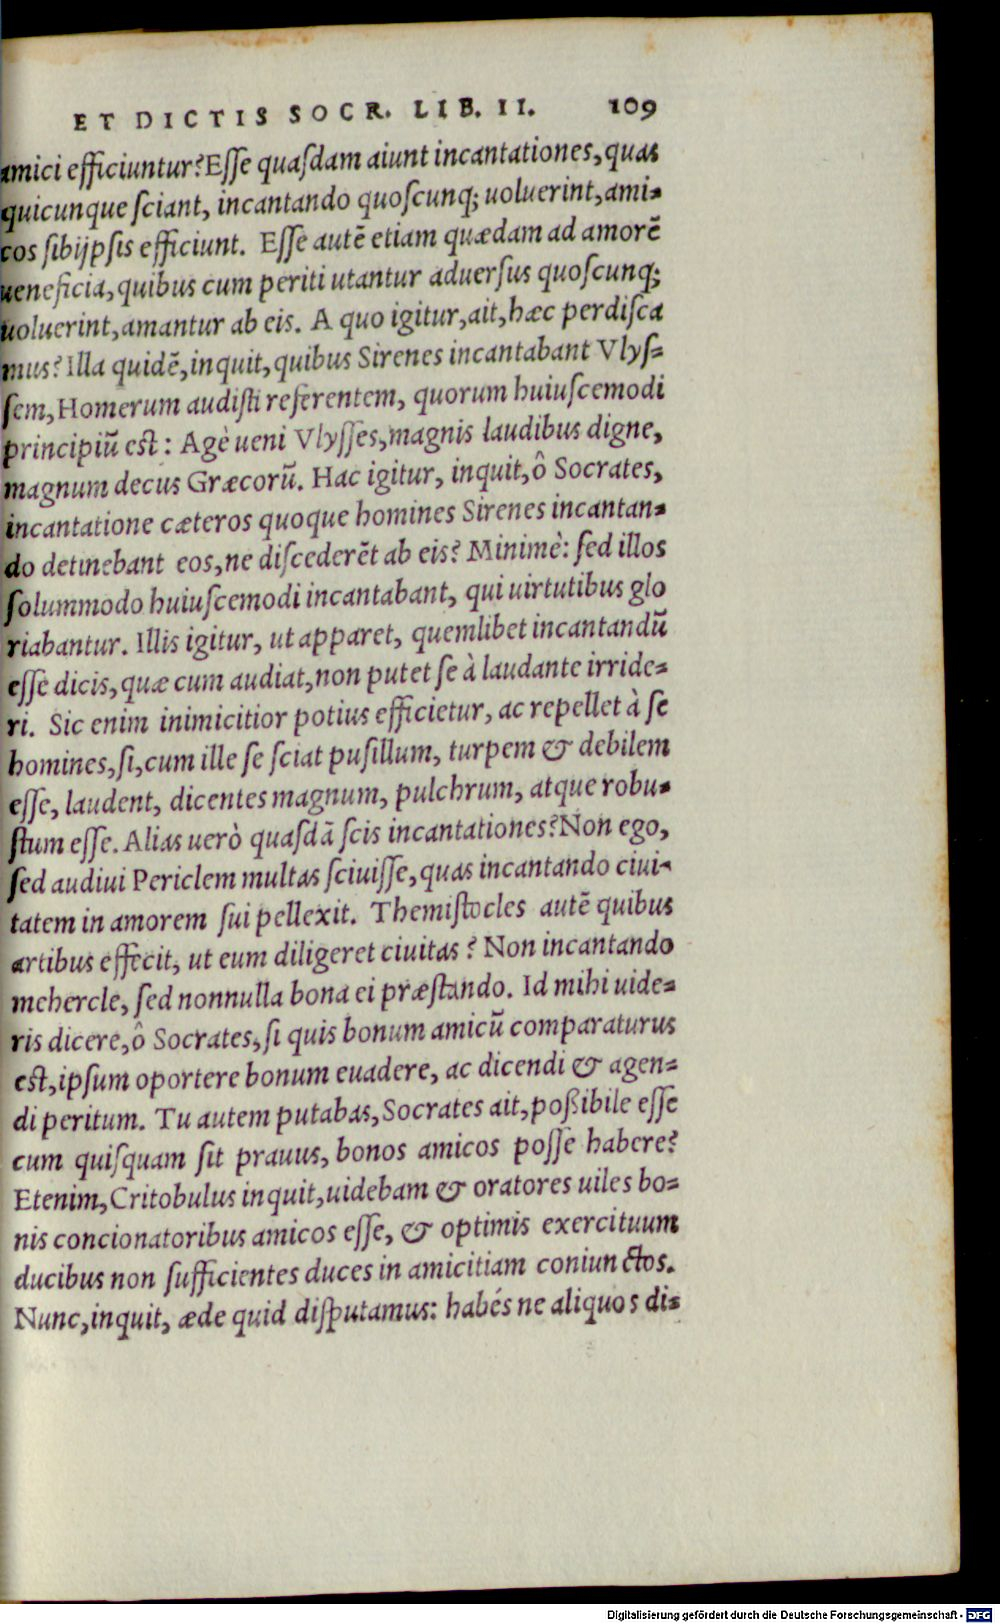 ET DICTIS SOCR. LIB. II. 109
amici efficiuntur? Esse quasdam aiunt incantationes, quas
quicunque sciant, incantando quoscunq; uoluerint, ami-
cos sibijpsis efficiunt. Esse autē etiam quædam ad amorē
ueneficia, quibus cum periti utantur aduersus quoscunq;
uoluerint, amantur ab eis. A quo igitur, ait, hæc perdisca
mus? Illa quidē, inquit, quibus Sirenes incantabant Vlys-
sem, Homerum audisti referentem, quorum huiuscemodi
principiū est: Agè ueni Vlysses, magnis laudibus digne,
magnum decus Græcorū. Hac igitur, inquit, ô Socrates,
incantatione cæteros quoque homines Sirenes incantan-
do detinebant eos, ne discederēt ab eis? Minimè: sed illos
solummodo huiuscemodi incantabant, qui uirtutibus glo
riabantur. Illis igitur, ut apparet, quemlibet incantandū
esse dicis, quæ cum audiat, non putet se à laudante irride-
ri. Sic enim inimicitior potius efficietur, ac repellet à se
homines, si, cum ille se sciat pusillum, turpem & debilem
esse, laudent, dicentes magnum, pulchrum, atque robu-
stum esse. Alias uerò quasdā scis incantationes? Non ego,
sed audiui Periclem multas sciuisse, quas incantando ciui-
tatem in amorem sui pellexit. Themistocles autē quibus
artibus effecit, ut eum diligeret ciuitas? Non incantando
mehercle, sed nonnulla bona ei præstando. Id mihi uide-
ris dicere, ô Socrates, si quis bonum amicū comparaturus
est, ipsum oportere bonum euadere, ac dicendi & agen-
di peritum. Tu autem putabas, Socrates ait, poßibile esse
cum quisquam sit prauus, bonos amicos posse habere?
Etenim, Critobulus inquit, uidebam & oratores uiles bo-
nis concionatoribus amicos esse, & optimis exercituum
ducibus non sufficientes duces in amicitiam coniunctos.
Nunc, inquit, æde quid disputamus: habés ne aliquos di-
Digitalisierung gefördert durch die Deutsche Forschungsgemeinschaft - DFG